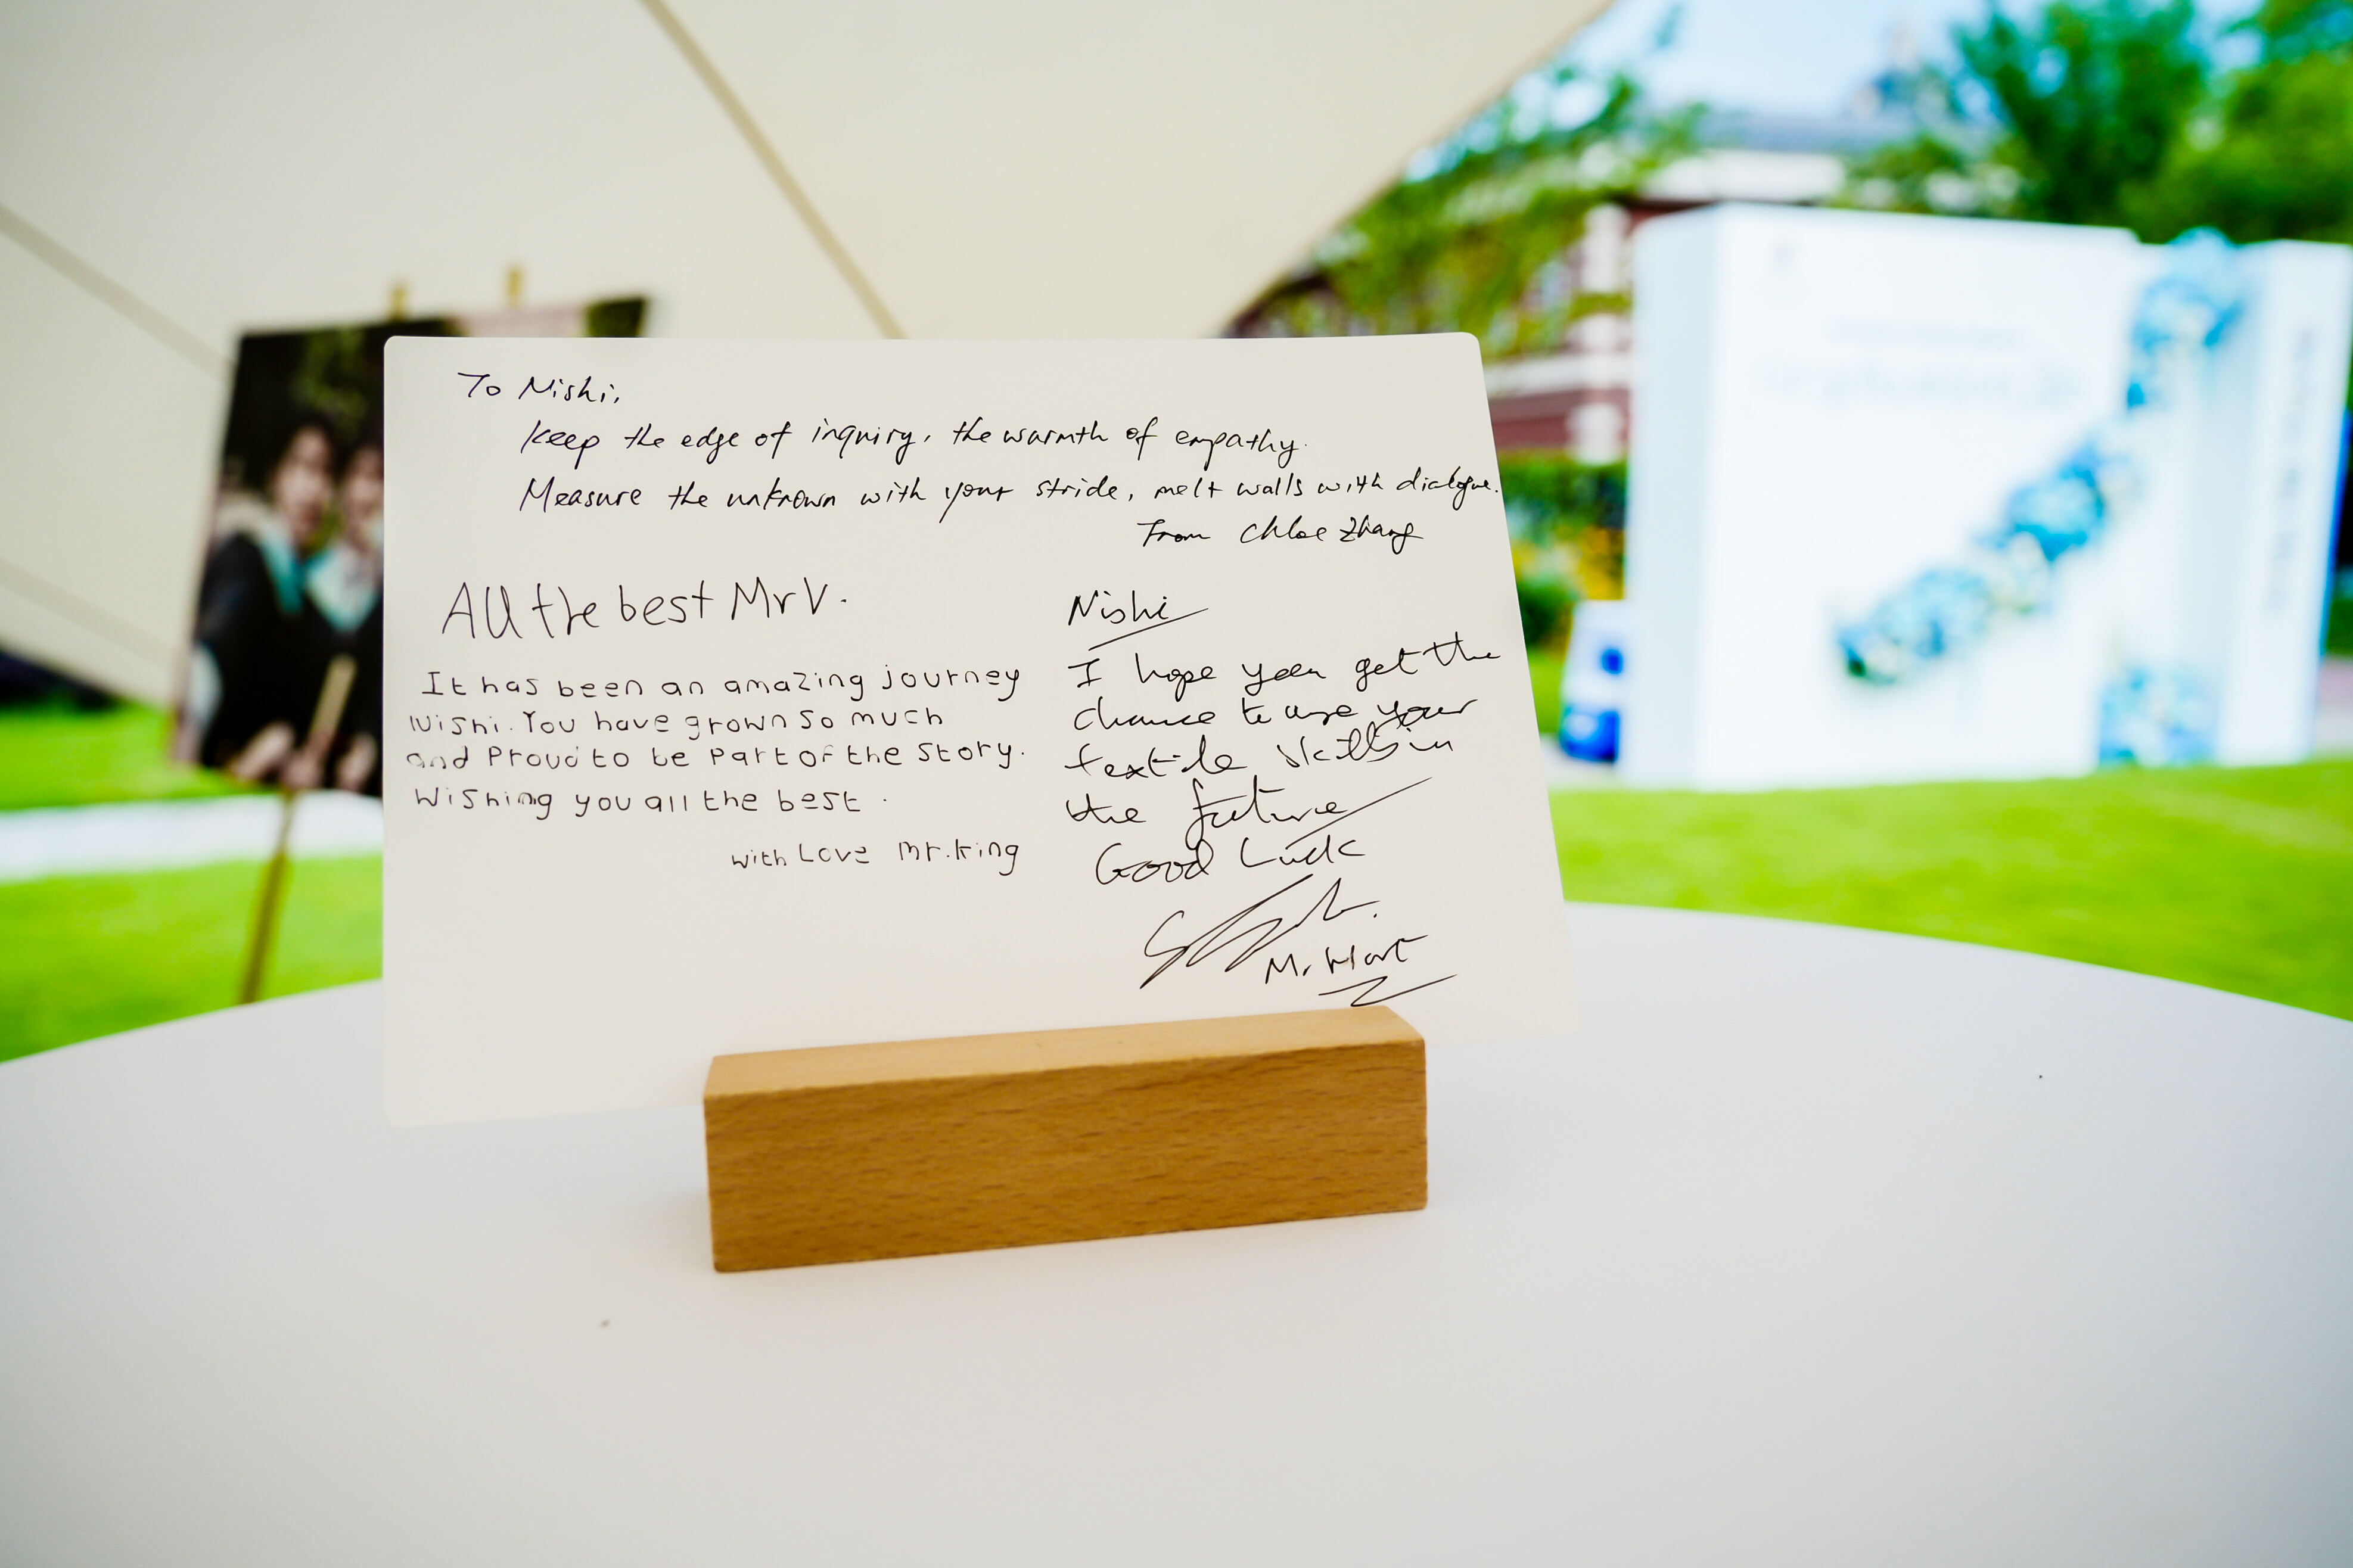 To Nishi,
Keep the edge of inquiry, the warmth of empathy.
Measure the unknown with your stride, melt walls with dialogue.
From Chloe Zhang
All the best Mr V.
It has been an amazing journey
Nishi. You have grown so much
and Proud to be Part of the Story.
Wishing you all the best.
with Love Mr. King
Nishi
I hope you get the
chance to use your
textile skills in
the future
Good Luck
Mr Hart